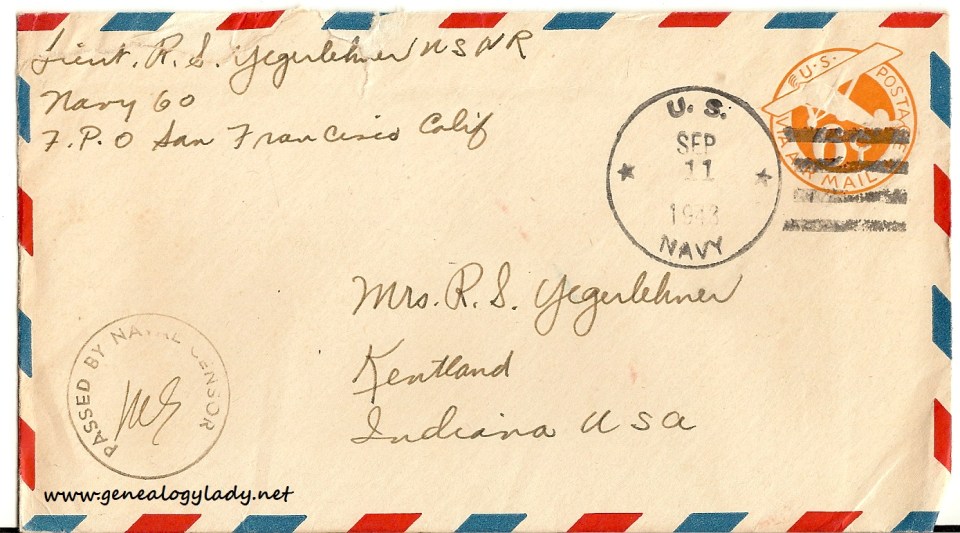 Lieut. R. S. Yegerlehner USNR
Navy 60
F.P.O San Francisco Calif
U.S. POSTAGE
6¢
VIA AIR MAIL
U.S.
SEP
11
1943
NAVY
Mrs. R. S. Yegerlehner
Kentland
Indiana USA
PASSED BY NAVAL CENSOR
www.genealogylady.net